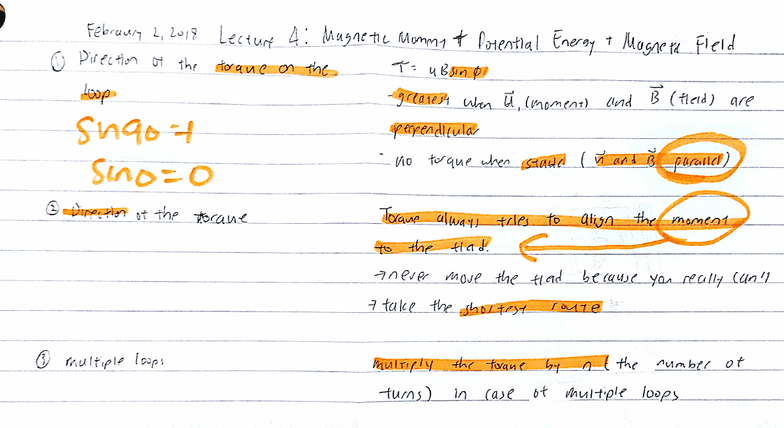 February 2, 2018 Lecture 4: Magnetic Moment & Potential Energy + Magnetic Field
① Direction of the torque on the
loop
sin90=1
sin0=0
τ= uBsin φ
-greatest when u⃗, (moment) and B⃗ (field) are
perpendicular
- no torque when stable (u⃗ and B⃗ parallel)
② Direction of the torque
Torque always tries to align the moment
to the field.
→never move the field because you really can't
→ take the shortest route
③ multiple loops
multiply the torque by n (the number of
turns) in case of multiple loops